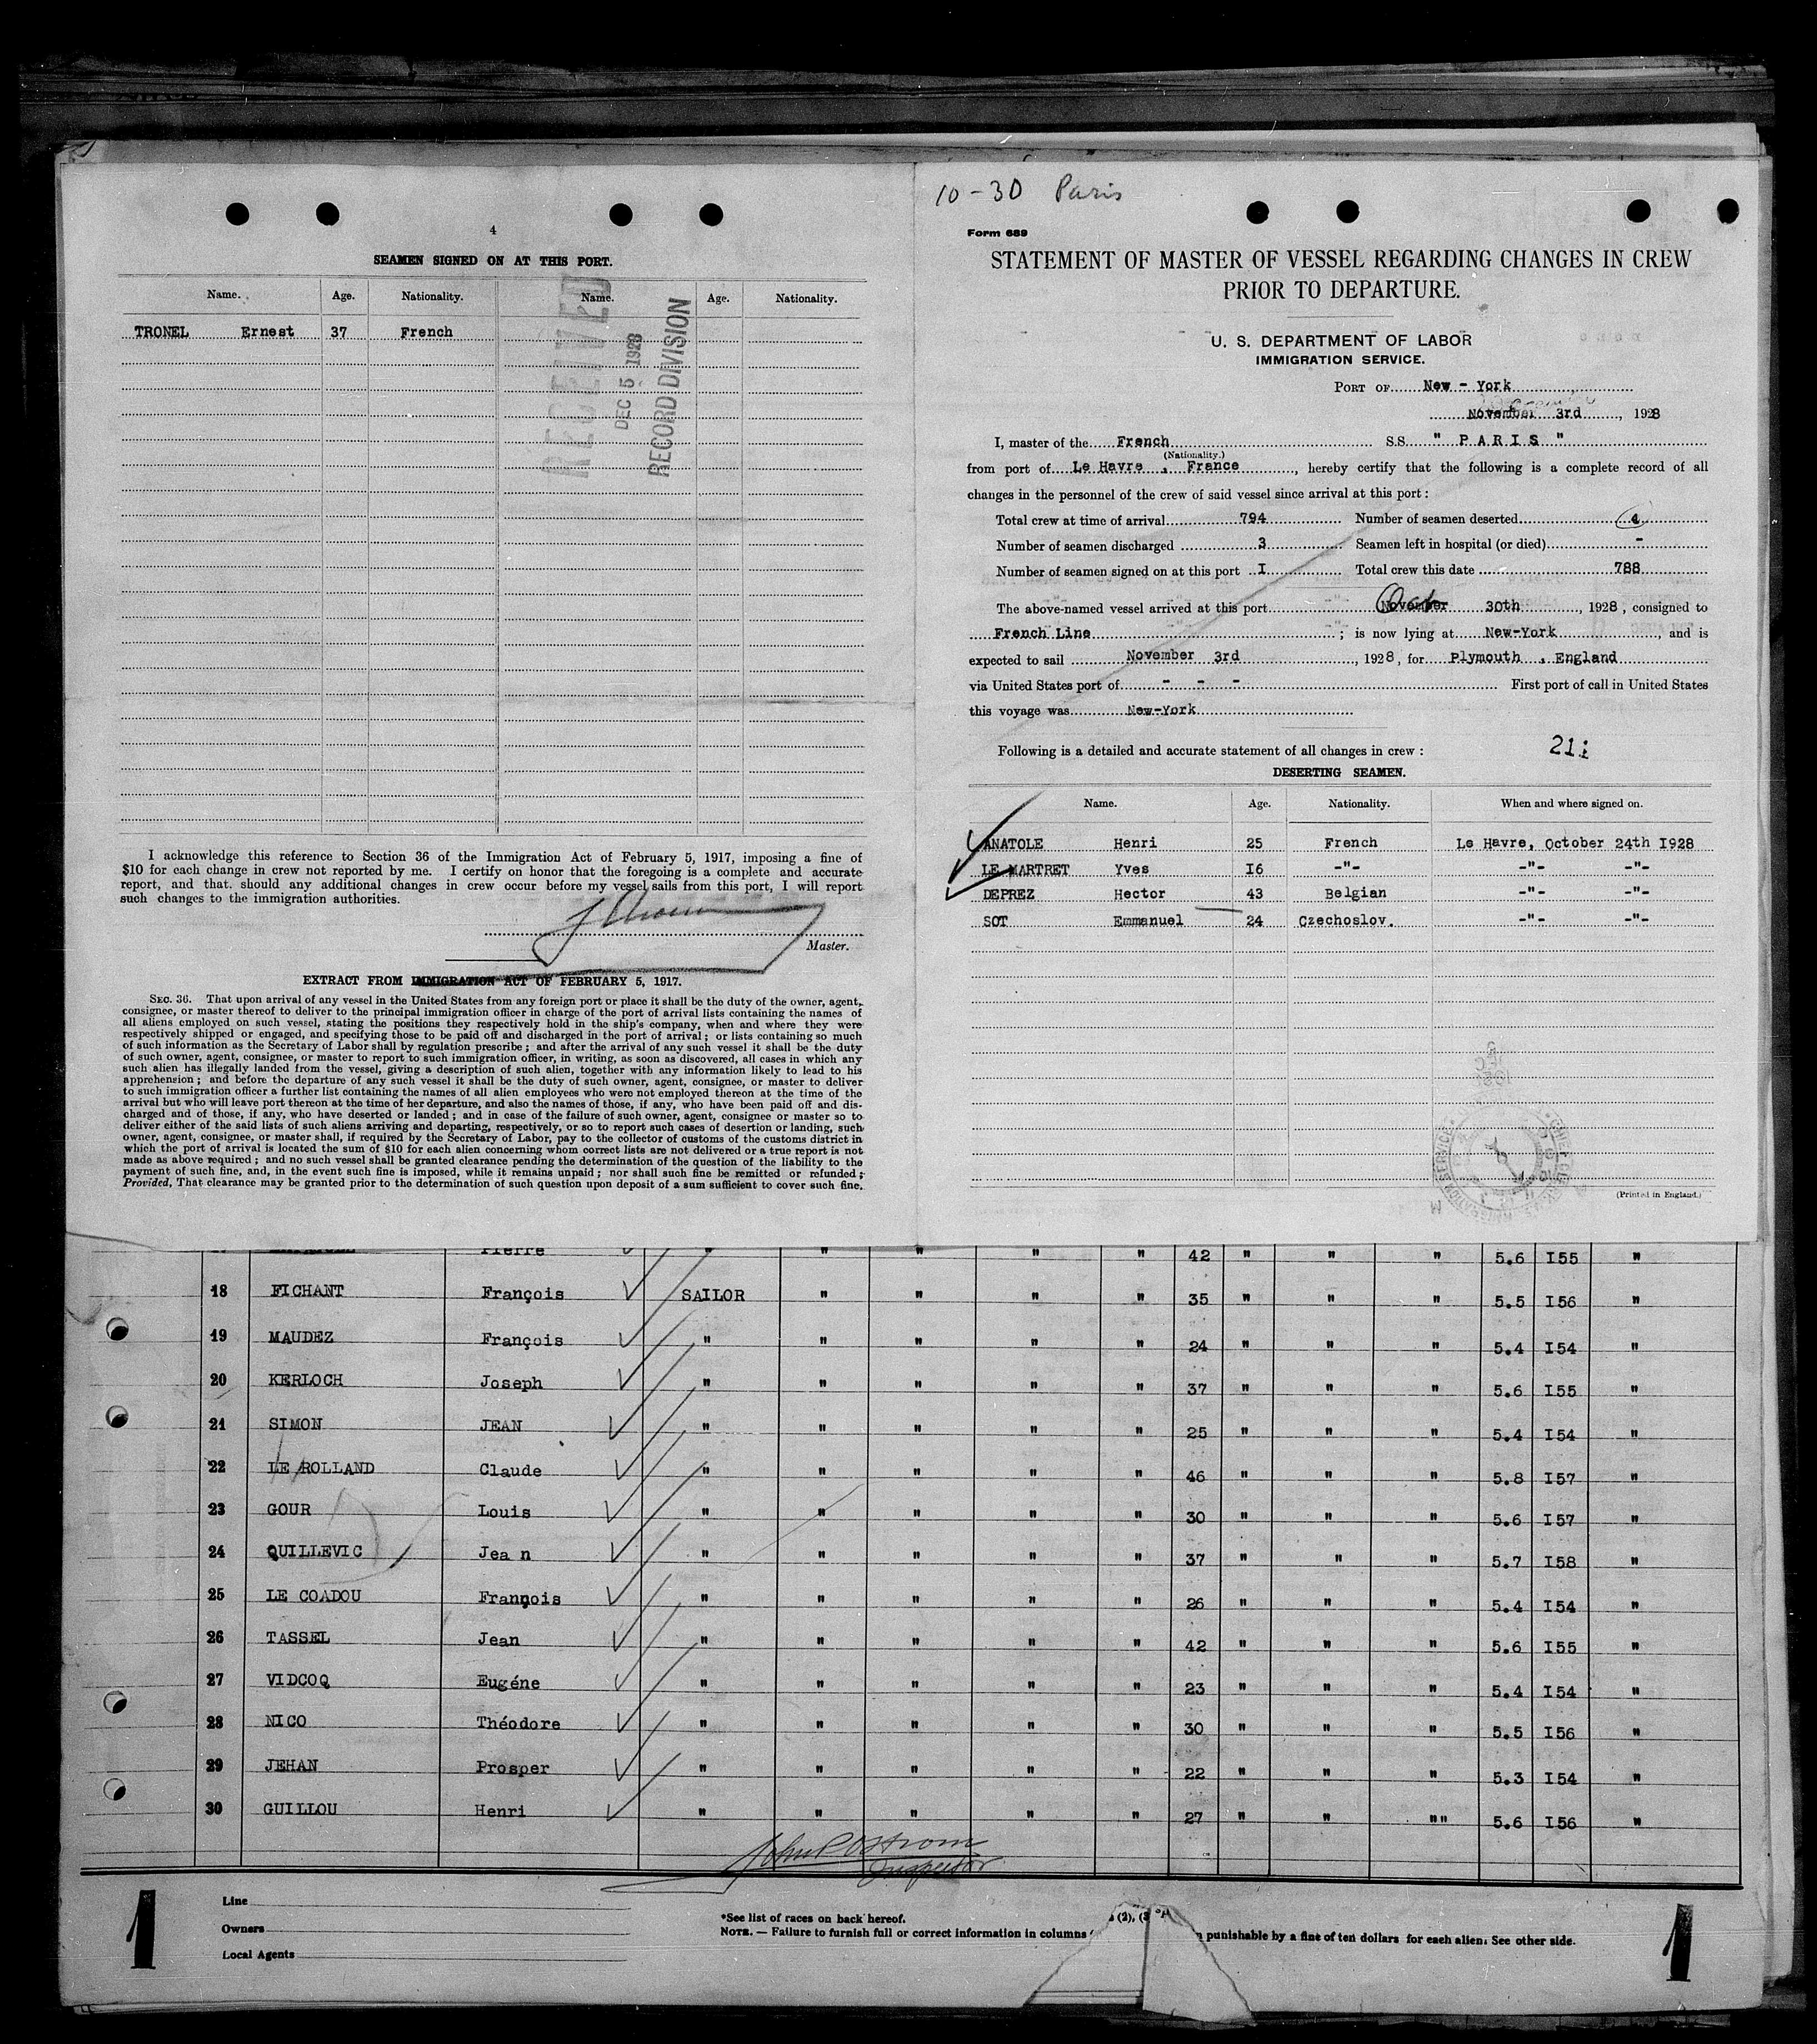 10-30 Paris
4
SEAMEN SIGNED ON AT THIS PORT.
Name. Age. Nationality. Name. Age. Nationality.
TRONEL Ernest 37 French
RECEIVED
DEC 5 1928
RECORD DIVISION
I acknowledge this reference to Section 36 of the Immigration Act of February 5, 1917, imposing a fine of
$10 for each change in crew not reported by me. I certify on honor that the foregoing is a complete and accurate
report, and that should any additional changes in crew occur before my vessel sails from this port, I will report
such changes to the immigration authorities.
Master.
EXTRACT FROM IMMIGRATION ACT OF FEBRUARY 5, 1917.
SEC. 36. That upon arrival of any vessel in the United States from any foreign port or place it shall be the duty of the owner, agent,
consignee, or master thereof to deliver to the principal immigration officer in charge of the port of arrival lists containing the names of
all aliens employed on such vessel, stating the positions they respectively hold in the ship's company, when and where they were
respectively shipped or engaged, and specifying those to be paid off and discharged in the port of arrival; or lists containing so much
of such information as the Secretary of Labor shall by regulation prescribe; and after the arrival of any such vessel it shall be the duty
of such owner, agent, consignee, or master to report to such immigration officer, in writing, as soon as discovered, all cases in which any
such alien has illegally landed from the vessel, giving a description of such alien, together with any information likely to lead to his
apprehension; and before the departure of any such vessel it shall be the duty of such owner, agent, consignee, or master to deliver
to such immigration officer a further list containing the names of all alien employees who were not employed thereon at the time of the
arrival but who will leave port thereon at the time of her departure, and also the names of those, if any, who have been paid off and dis-
charged and of those, if any, who have deserted or landed; and in case of the failure of such owner, agent, consignee or master so to
deliver either of the said lists of such aliens arriving and departing, respectively, or so to report such cases of desertion or landing, such
owner, agent, consignee, or master shall, if required by the Secretary of Labor, pay to the collector of customs of the customs district in
which the port of arrival is located the sum of $10 for each alien concerning whom correct lists are not delivered or a true report is not
made as above required; and no such vessel shall be granted clearance pending the determination of the question of the liability to the
payment of such fine, and, in the event such fine is imposed, while it remains unpaid; nor shall such fine be remitted or refunded;
Provided, That clearance may be granted prior to the determination of such question upon deposit of a sum sufficient to cover such fine.
Form 689
STATEMENT OF MASTER OF VESSEL REGARDING CHANGES IN CREW
PRIOR TO DEPARTURE.
U. S. DEPARTMENT OF LABOR
IMMIGRATION SERVICE.
PORT OF New - York
November 3rd, 1928
I, master of the French S.S. " P A R I S "
(Nationality.)
from port of Le Havre , France, hereby certify that the following is a complete record of all
changes in the personnel of the crew of said vessel since arrival at this port:
Total crew at time of arrival 794 Number of seamen deserted 4
Number of seamen discharged 3 Seamen left in hospital (or died) -
Number of seamen signed on at this port I Total crew this date 788
The above-named vessel arrived at this port November Oct 30th, 1928, consigned to
French Line; is now lying at New-York, and is
expected to sail November 3rd, 1928, for Plymouth , England
via United States port of - - - First port of call in United States
this voyage was New-York
Following is a detailed and accurate statement of all changes in crew:
DESERTING SEAMEN.
Name. Age. Nationality. When and where signed on.
ANATOLE Henri 25 French Le Havre, October 24th I928
LE MARTRET Yves I6 -"- -"- -"-
DEPREZ Hector 43 Belgian -"- -"-
SOT Emmanuel 24 Czechoslov. -"- -"-
(Printed in England.)
Pierre " " " " " 42 " " " 5.6 I55 "
18 FICHANT François SAILOR " " " " 35 " " " 5.5 I56 "
19 MAUDEZ François " " " " " 24 " " " 5.4 I54 "
20 KERLOCH Joseph " " " " " 37 " " " 5.6 I55 "
21 SIMON JEAN " " " " " 25 " " " 5.4 I54 "
22 LE ROLLAND Claude " " " " " 46 " " " 5.8 I57 "
23 GOUR Louis " " " " " 30 " " " 5.6 I57 "
24 QUILLEVIC Jea n " " " " " 37 " " " 5.7 I58 "
25 LE COADOU François " " " " " 26 " " " 5.4 I54 "
26 TASSEL Jean " " " " " 42 " " " 5.6 I55 "
27 VIDCOQ Eugéne " " " " " 23 " " " 5.4 I54 "
28 NICO Théodore " " " " " 30 " " " 5.5 I56 "
29 JEHAN Prosper " " " " " 22 " " " 5.3 I54 "
30 GUILLOU Henri " " " " " 27 " " "" 5.6 I56 "
John P Ostrom
Inspector
1 1
Line
Owners
Local Agents
*See list of races on back hereof.
NOTE. — Failure to furnish full or correct information in columns (2), punishable by a fine of ten dollars for each alien. See other side.